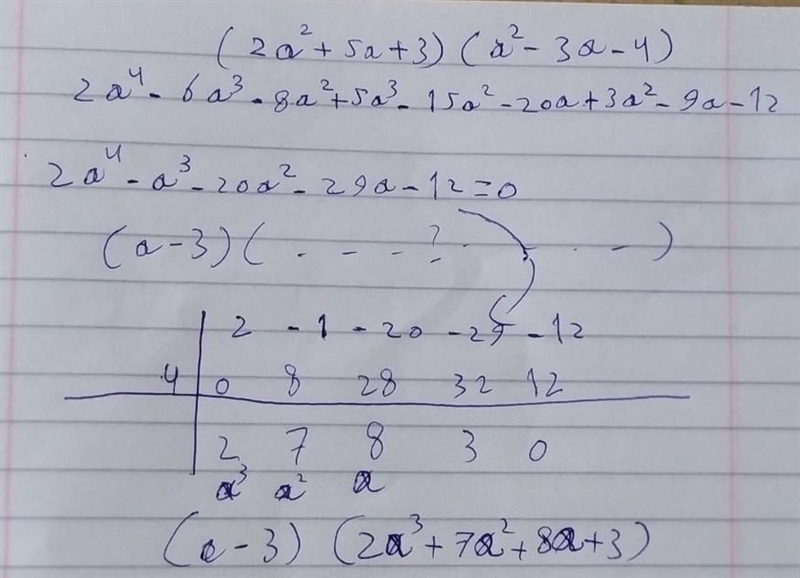 (2a²+5a+3) (a²-3a-4)
2a⁴-6a³-8a²+5a³-15a²-20a+3a²-9a-12
2a⁴-a³-20a²-29a-12=0
(a-3)( . - - ? . - . - )
2 -1 -20 -29 -12
4 0 8 28 32 12
2 7 8 3 0
a³ a² a
(a-3) (2a³+7a²+8a+3)